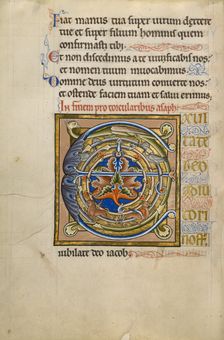 Fiat manus tua super uirum dextere
tue et super filium hominis quem
confirmasti tibi.
Et non discedimus a te uiuificabis nos
et nomen tuum inuocabimus.
Domine deus uirtutum conuerte nos
et ostende faciem tuam et salui erimus.
In finem pro torcularibus asaph
E XUL
TATE
DEO
ADIU
TORI
NOSTR
iubilate deo iacob